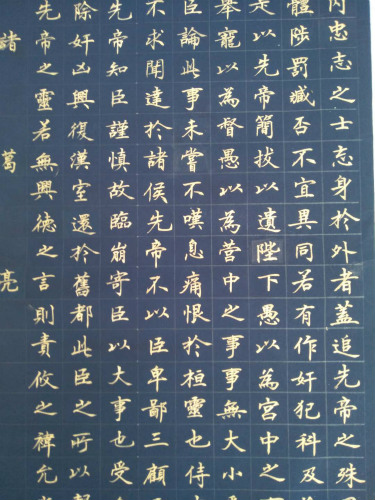 內忠志之士志身於外者蓋追先帝之殊
體陟罰臧否不宜異同若有作奸犯科及
是以先帝簡拔以遺陛下愚以為宮中之
舉寵以為督愚以為營中之事事無大小
臣論此事未嘗不嘆息痛恨於桓靈也侍
不求聞達於諸侯先帝不以臣卑鄙三顧
先帝知臣謹慎故臨崩寄臣以大事也受
除奸凶興復漢室還於舊都此臣之所以
先帝之靈若無興德之言則責攸之禕允
諸葛亮